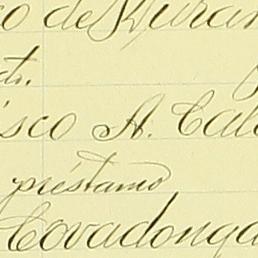 co de Duran
tr.
isco A. Cal
préstamo
Covadonga